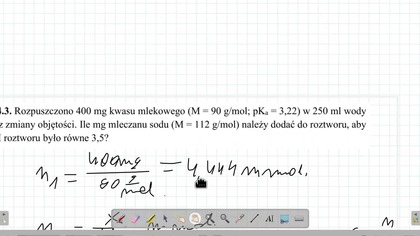 4.3. Rozpuszczono 400 mg kwasu mlekowego (M = 90 g/mol; pKa = 3,22) w 250 ml wody
z zmiany objętości. Ile mg mleczanu sodu (M = 112 g/mol) należy dodać do roztworu, aby
I roztworu było równe 3,5?
n₁ = 400mg / 90 g/mol = 4,444 mmol.